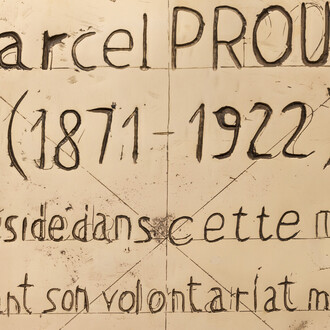 arcel PROU
(1871-1922)
side dans cette m
ant son volontariat m